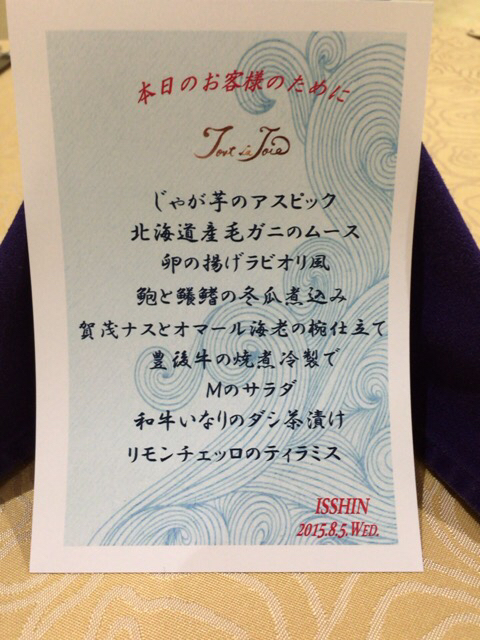 本日のお客様のために
Tout la Joie
じゃが芋のアスピック
北海道産毛ガニのムース
卵の揚げラビオリ風
鮑と鱶鰭の冬瓜煮込み
賀茂ナスとオマール海老の椀仕立て
豊後牛の焼煮冷製で
Mのサラダ
和牛いなりのダシ茶漬け
リモンチェッロのティラミス
ISSHIN
2015.8.5.WED.